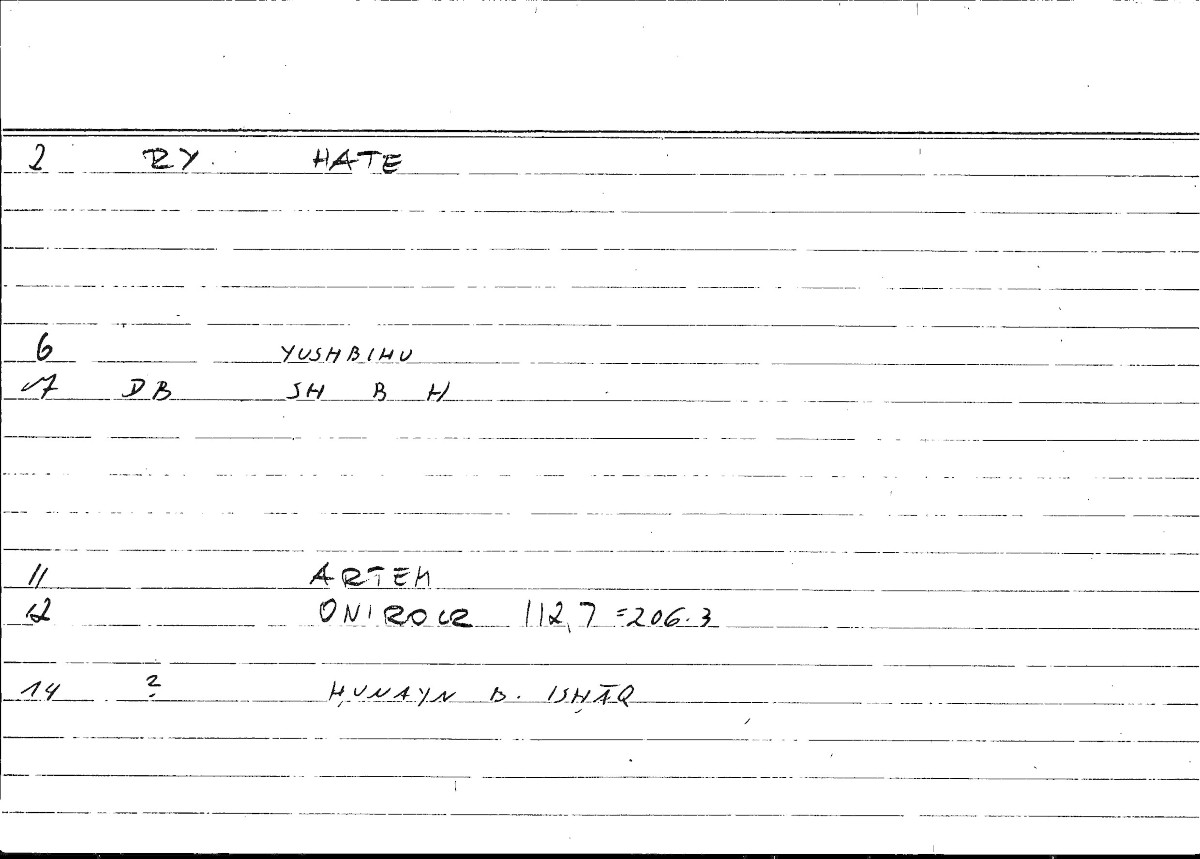 2 RY. HATE
6 YUSHBIHU
7 DB SH B H
11 ARTEM
12 ONIROCR 112,7 =206.3
14 ? ḤUNAYN B. ISḤĀQ